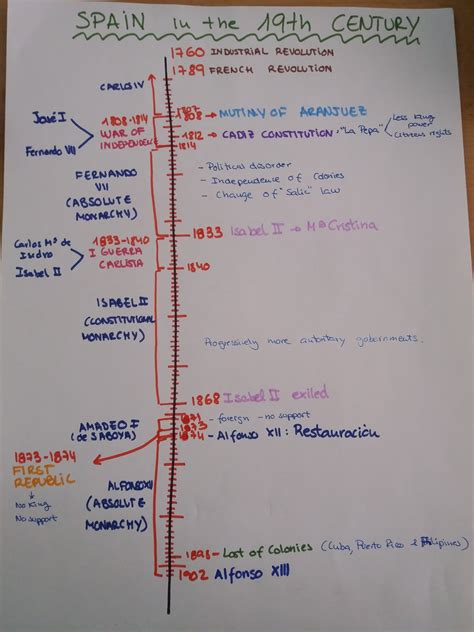 SPAIN in the 19th CENTURY
1760 INDUSTRIAL REVOLUTION
1789 FRENCH REVOLUTION
CARLOS IV
1807
1808 → MUTINY OF ARANJUEZ
José I
Fernando VII
1808-1814
WAR OF
INDEPENDENCE
1812 → CADIZ CONSTITUTION, "La Pepa"
Less king
power
Citizens rights
1814
FERNANDO
VII
(ABSOLUTE
MONARCHY)
- Political disorder
- Independence of Colonies
- Change of "Salic" law
1833 Isabel II → Mª Cristina
Carlos Mª de
Isidro
Isabel II
1833-1840
I GUERRA
CARLISTA
1840
ISABEL II
(CONSTITUTIONAL
MONARCHY)
Progressively more autoritary goberments.
1868 Isabel II exiled
AMADEO I
(de SABOYA)
1871 - foreign - no support
1873
1874 - Alfonso XII: Restauración
1873-1874
FIRST
REPUBLIC
No King
No support
ALFONSO XII
(ABSOLUTE
MONARCHY)
1898 - Lost of Colonies (Cuba, Puerto Rico e Filipines)
1902 Alfonso XIII